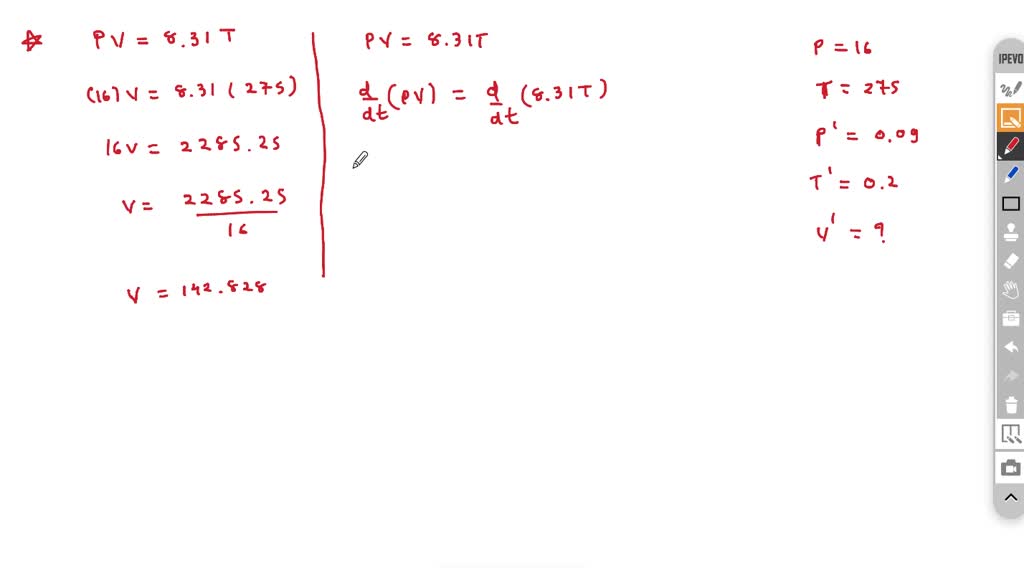 ☆ PV = 8.31T
(16)V = 8.31(275)
16V = 2285.25
V = 2285.25/16
V = 142.828
PV = 8.31T
d/dt (PV) = d/dt (8.31T)
P = 16
T = 275
P' = 0.09
T' = 0.2
V' = ?
IPEVO